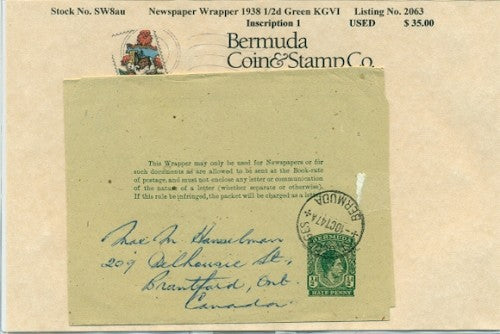 Stock No. SW8au Newspaper Wrapper 1938 1/2d Green KGVI Listing No. 2063
Inscription 1 USED $ 35.00
Bermuda
Coin & Stamp Co.
This Wrapper may only be used for Newspapers or for
such documents as are allowed to be sent at the Book-rate
of postage, and must not enclose any letter or communication
of the nature of a letter (whether separate or otherwise).
If this rule be infringed, the packet will be charged as a letter
BERMUDA
1 OCT 47
Mac M Hanselman
209 Dalhousie St,
Brantford, Ont.
Canada
BERMUDA
HALF PENNY